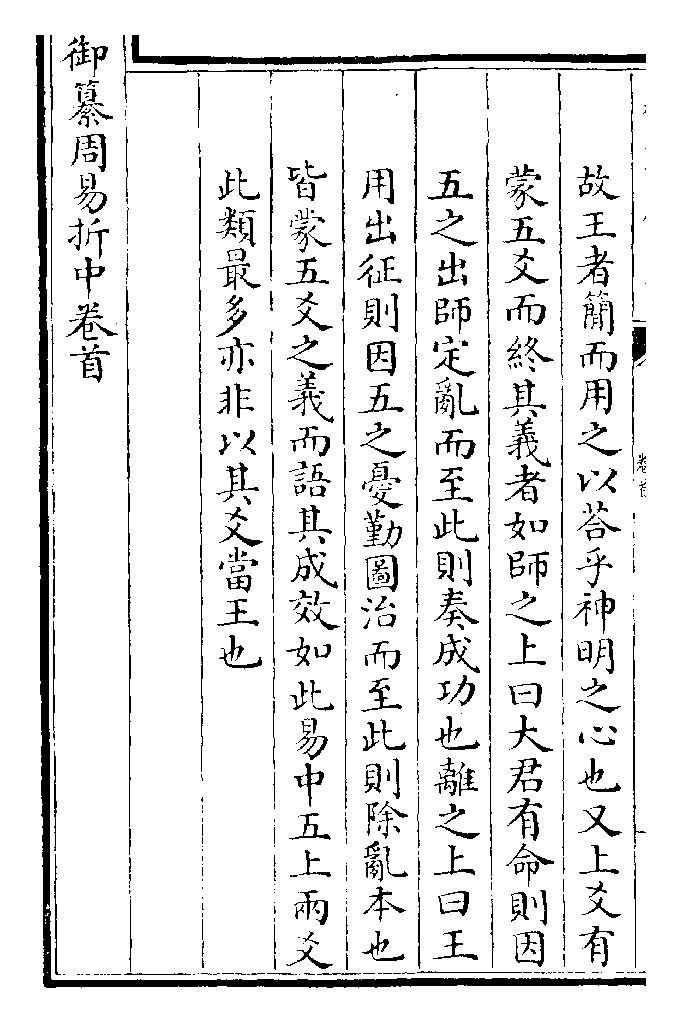 故王者簡而用之以荅乎神明之心也又上爻有
蒙五爻而終其義者如師之上曰大君有命則因
五之出師定亂而至此則奏成功也離之上曰王
用出征則因五之憂勤圖治而至此則除亂本也
皆蒙五爻之義而語其成效如此易中五上兩爻
此類最多亦非以其爻當王也
御纂周易折中卷首